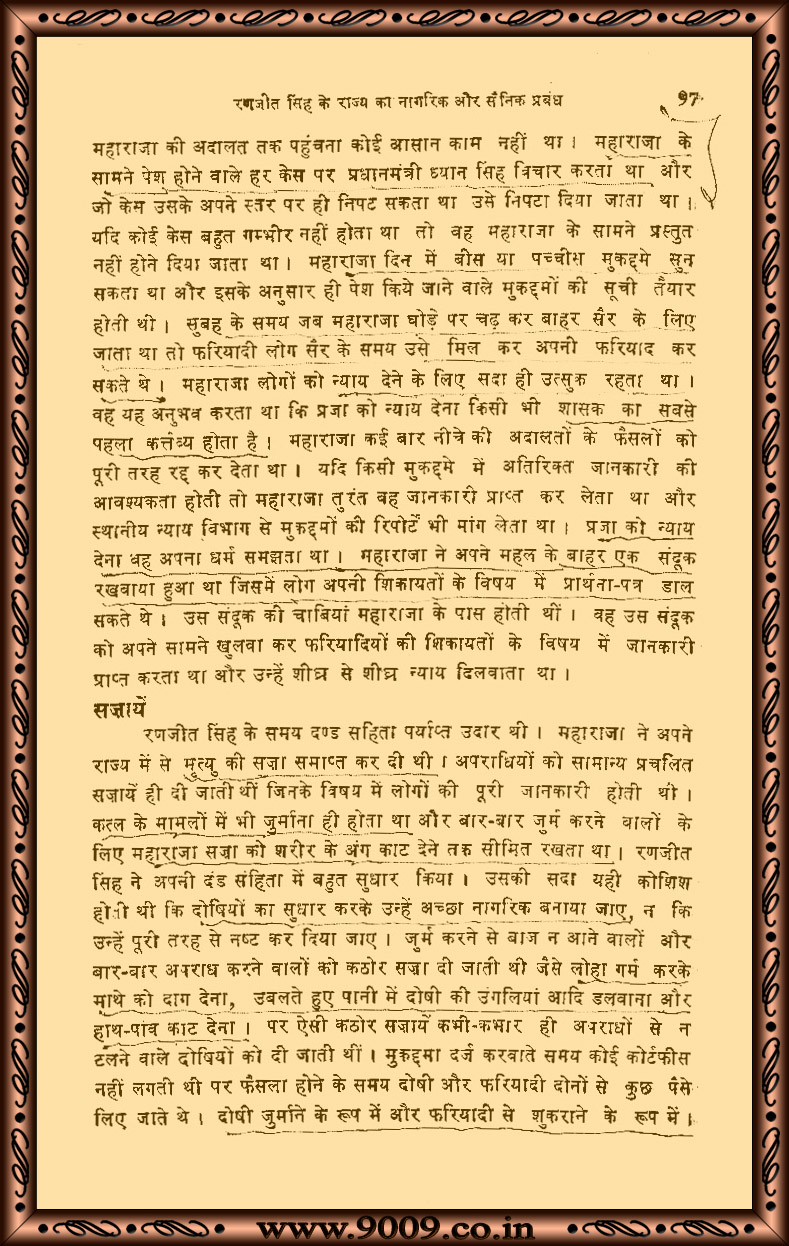 रणजीत सिंह के राज्य का नागरिक और सैनिक प्रबंध 97
महाराजा की अदालत तक पहुंचना कोई आसान काम नहीं था। महाराजा के
सामने पेश होने वाले हर केस पर प्रधानमंत्री ध्यान सिंह विचार करता था और
जो केस उसके अपने स्तर पर ही निपट सकता था उसे निपटा दिया जाता था।
यदि कोई केस बहुत गम्भीर नहीं होता था तो वह महाराजा के सामने प्रस्तुत
नहीं होने दिया जाता था। महाराजा दिन में बीस या पच्चीस मुकद्दमे सुन
सकता था और इसके अनुसार ही पेश किये जाने वाले मुकद्दमों की सूची तैयार
होती थी। सुबह के समय जब महाराजा घोड़े पर चढ़ कर बाहर सैर के लिए
जाता था तो फरियादी लोग सैर के समय उसे मिल कर अपनी फरियाद कर
सकते थे। महाराजा लोगों को न्याय देने के लिए सदा ही उत्सुक रहता था।
वह यह अनुभव करता था कि प्रजा को न्याय देना किसी भी शासक का सबसे
पहला कर्त्तव्य होता है। महाराजा कई बार नीचे की अदालतों के फैसलों को
पूरी तरह रद्द कर देता था। यदि किसी मुकद्दमे में अतिरिक्त जानकारी की
आवश्यकता होती तो महाराजा तुरंत वह जानकारी प्राप्त कर लेता था और
स्थानीय न्याय विभाग से मुकद्दमों की रिपोर्टें भी मांग लेता था। प्रजा को न्याय
देना वह अपना धर्म समझता था। महाराजा ने अपने महल के बाहर एक संदूक
रखवाया हुआ था जिसमें लोग अपनी शिकायतों के विषय में प्रार्थना-पत्र डाल
सकते थे। उस संदूक की चाबियां महाराजा के पास होती थीं। वह उस संदूक
को अपने सामने खुलवा कर फरियादियों की शिकायतों के विषय में जानकारी
प्राप्त करता था और उन्हें शीघ्र से शीघ्र न्याय दिलवाता था।
सज़ायें
रणजीत सिंह के समय दण्ड सहिता पर्याप्त उदार थी। महाराजा ने अपने
राज्य में से मृत्यु की सज़ा समाप्त कर दी थी। अपराधियों को सामान्य प्रचलित
सज़ायें ही दी जाती थीं जिनके विषय में लोगों की पूरी जानकारी होती थी।
कत्ल के मामलों में भी जुर्माना ही होता था और बार-बार जुर्म करने वालों के
लिए महाराजा सज़ा को शरीर के अंग काट देने तक सीमित रखता था। रणजीत
सिंह ने अपनी दंड संहिता में बहुत सुधार किया। उसकी सदा यही कोशिश
होती थी कि दोषियों का सुधार करके उन्हें अच्छा नागरिक बनाया जाए, न कि
उन्हें पूरी तरह से नष्ट कर दिया जाए। जुर्म करने से बाज न आने वालों और
बार-बार अपराध करने वालों को कठोर सज़ा दी जाती थी जैसे लोहा गर्म करके
माथे को दाग देना, उबलते हुए पानी में दोषी की उंगलियां आदि डलवाना और
हाथ-पांव काट देना। पर ऐसी कठोर सज़ायें कभी-कभार ही अपराधों से न
टलने वाले दोषियों को दी जाती थीं। मुकद्दमा दर्ज करवाते समय कोई कोर्टफीस
नहीं लगती थी पर फैसला होने के समय दोषी और फरियादी दोनों से कुछ पैसे
लिए जाते थे। दोषी जुर्माने के रूप में और फरियादी से शुकराने के रूप में।
www.9009.co.in